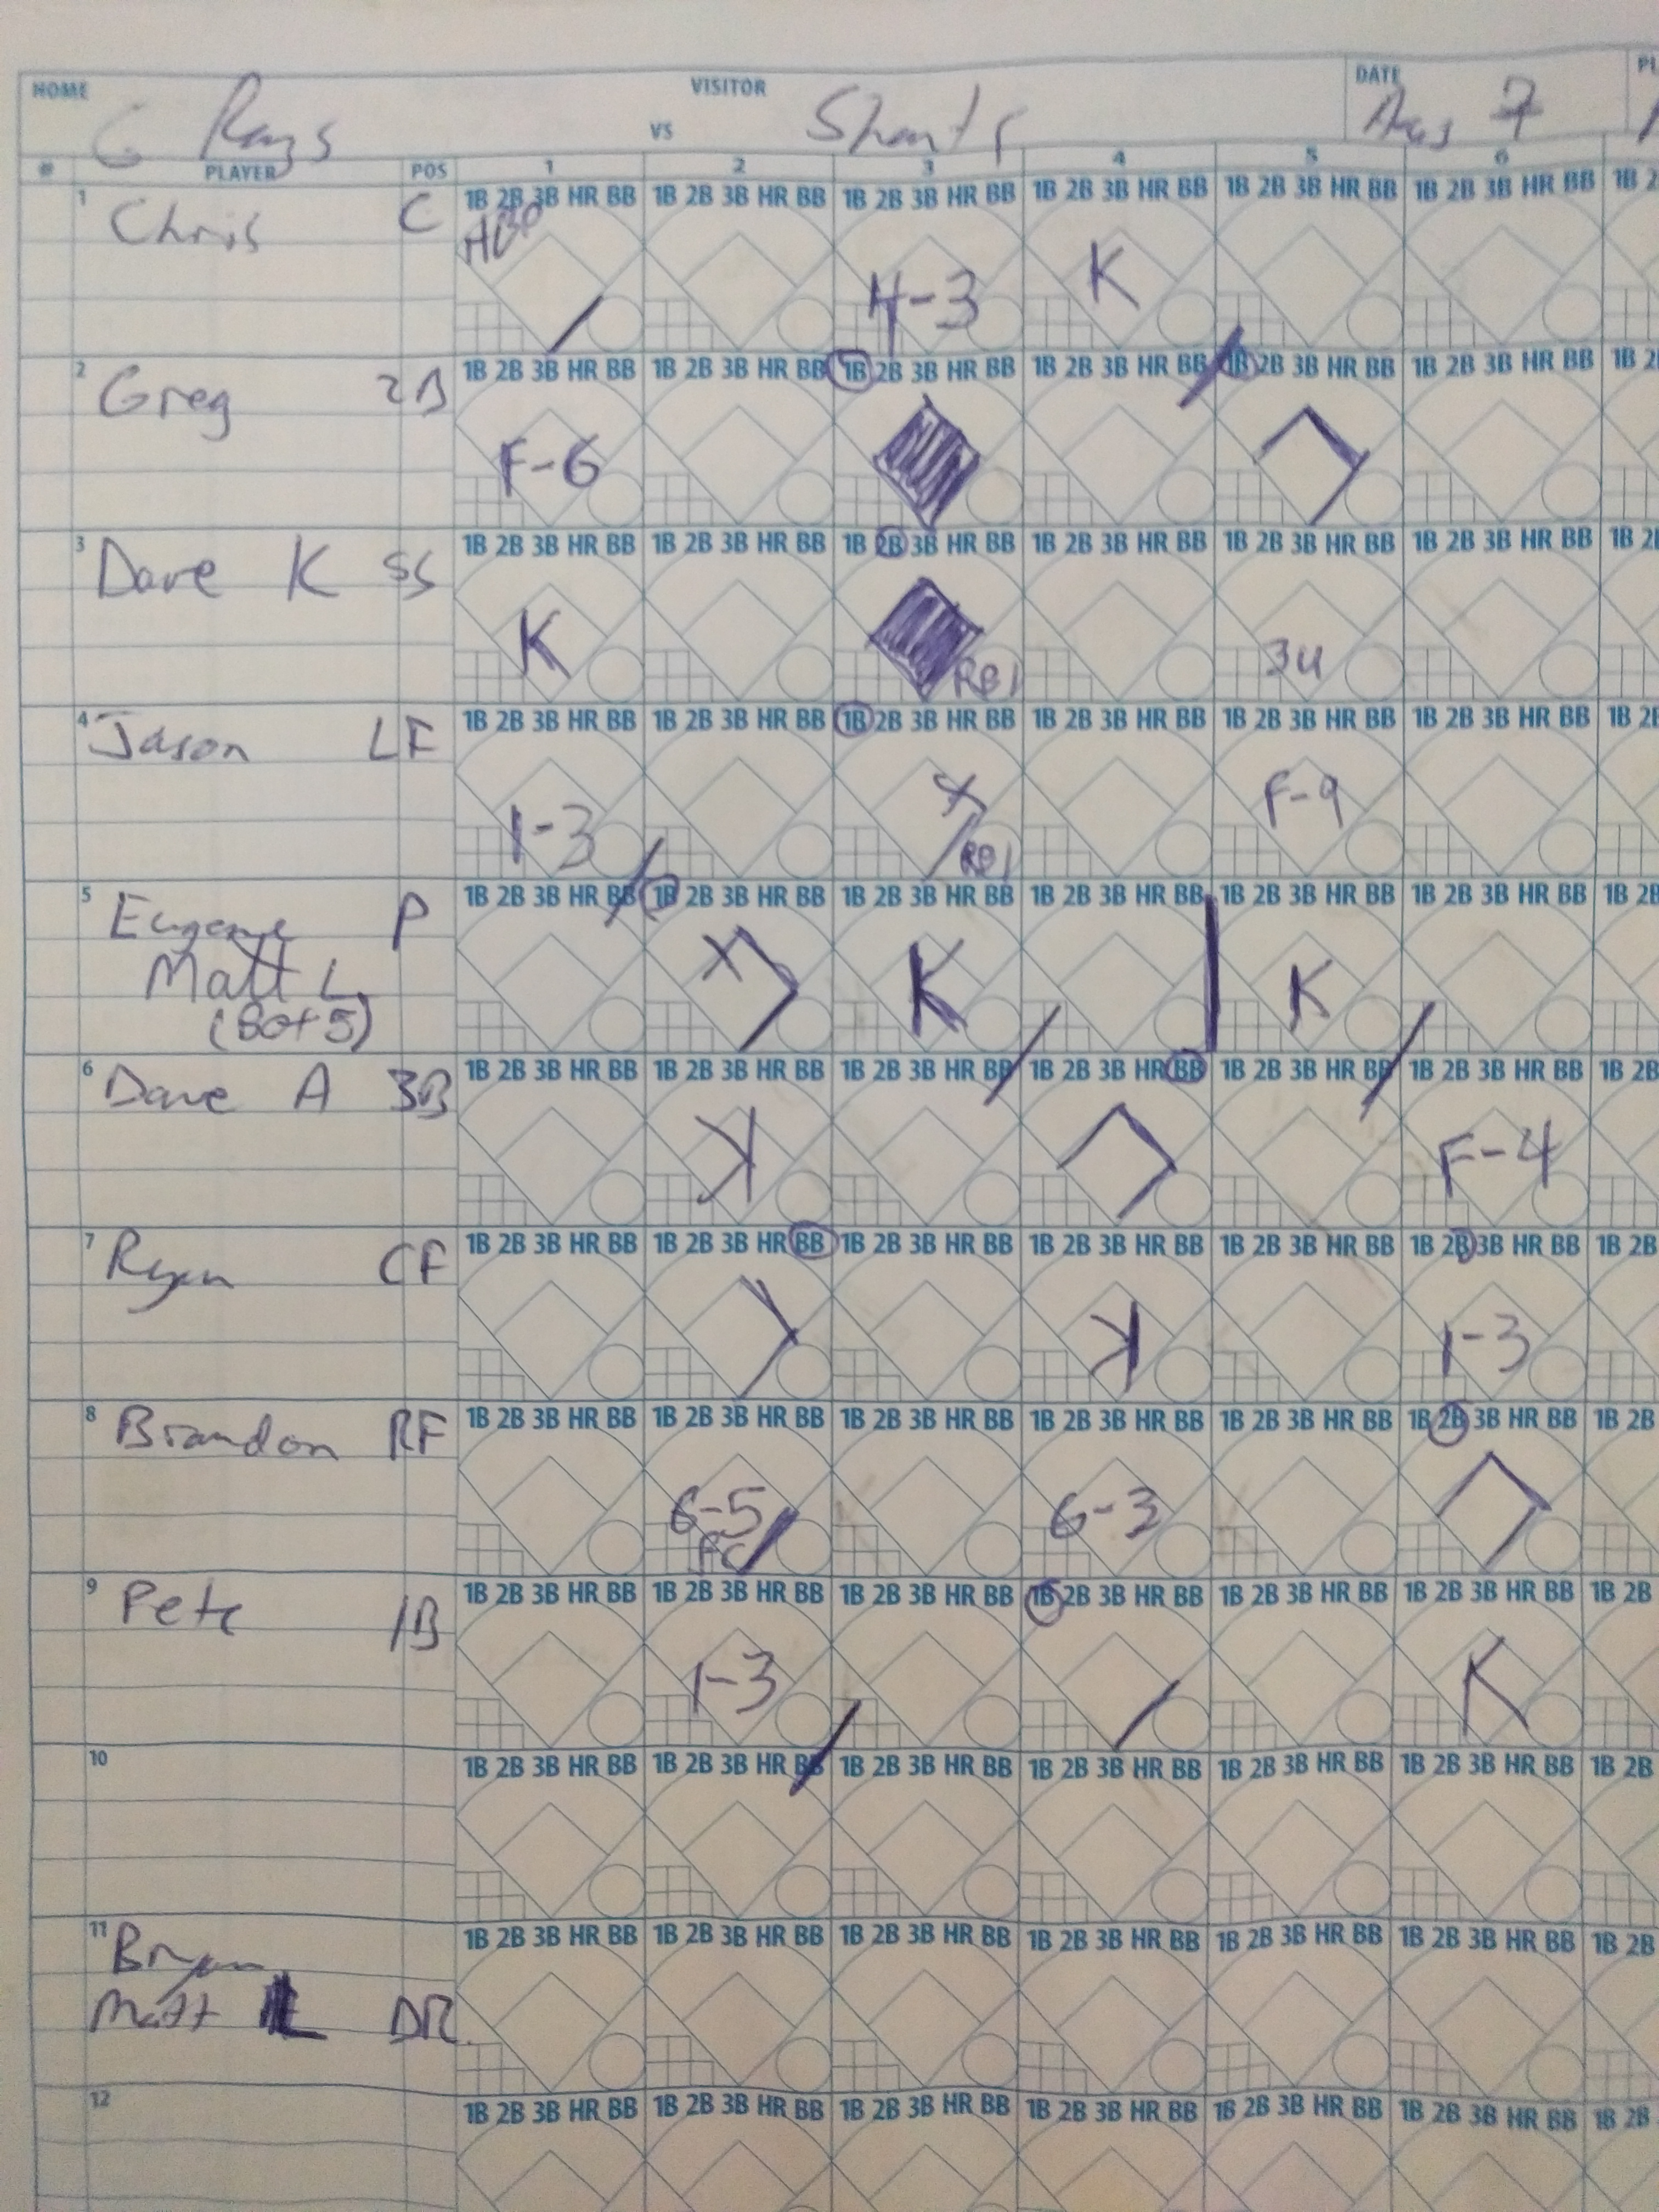 HOME VISITOR DATE
G Rays VS Shorts Aug 7
# PLAYER POS 1 2 3 4 5 6
1B 2B 3B HR BB 1B 2B 3B HR BB 1B 2B 3B HR BB 1B 2B 3B HR BB 1B 2B 3B HR BB 1B 2B 3B HR BB 1B 2
1 Chris C HBP 4-3 K
1B 2B 3B HR BB 1B 2B 3B HR BB 1B 2B 3B HR BB 1B 2B 3B HR BB 1B 2B 3B HR BB 1B 2B 3B HR BB 1B 2
2 Greg 2B F-6
1B 2B 3B HR BB 1B 2B 3B HR BB 1B 2B 3B HR BB 1B 2B 3B HR BB 1B 2B 3B HR BB 1B 2B 3B HR BB 1B 2
3 Dave K SS K RBI 3U
1B 2B 3B HR BB 1B 2B 3B HR BB 1B 2B 3B HR BB 1B 2B 3B HR BB 1B 2B 3B HR BB 1B 2B 3B HR BB 1B 2B
4 Jason LF 1-3 X RBI F-9
1B 2B 3B HR BB 1B 2B 3B HR BB 1B 2B 3B HR BB 1B 2B 3B HR BB 1B 2B 3B HR BB 1B 2B 3B HR BB 1B 2B
5 Eugene P X K K
Matt L
(Bot 5)
1B 2B 3B HR BB 1B 2B 3B HR BB 1B 2B 3B HR BB 1B 2B 3B HR BB 1B 2B 3B HR BB 1B 2B 3B HR BB 1B 2B
6 Dave A 3B K F-4
1B 2B 3B HR BB 1B 2B 3B HR BB 1B 2B 3B HR BB 1B 2B 3B HR BB 1B 2B 3B HR BB 1B 2B 3B HR BB 1B 2B
7 Ryan CF K 1-3
1B 2B 3B HR BB 1B 2B 3B HR BB 1B 2B 3B HR BB 1B 2B 3B HR BB 1B 2B 3B HR BB 1B 2B 3B HR BB 1B 2B
8 Brandon RF 6-5 FC 6-3
1B 2B 3B HR BB 1B 2B 3B HR BB 1B 2B 3B HR BB 1B 2B 3B HR BB 1B 2B 3B HR BB 1B 2B 3B HR BB 1B 2B
9 Pete 1B 1-3 K
10 1B 2B 3B HR BB 1B 2B 3B HR BB 1B 2B 3B HR BB 1B 2B 3B HR BB 1B 2B 3B HR BB 1B 2B 3B HR BB 1B 2B
11 1B 2B 3B HR BB 1B 2B 3B HR BB 1B 2B 3B HR BB 1B 2B 3B HR BB 1B 2B 3B HR BB 1B 2B 3B HR BB 1B 2B
Bryan
Matt L
12 1B 2B 3B HR BB 1B 2B 3B HR BB 1B 2B 3B HR BB 1B 2B 3B HR BB 1B 2B 3B HR BB 1B 2B 3B HR BB 1B 2B